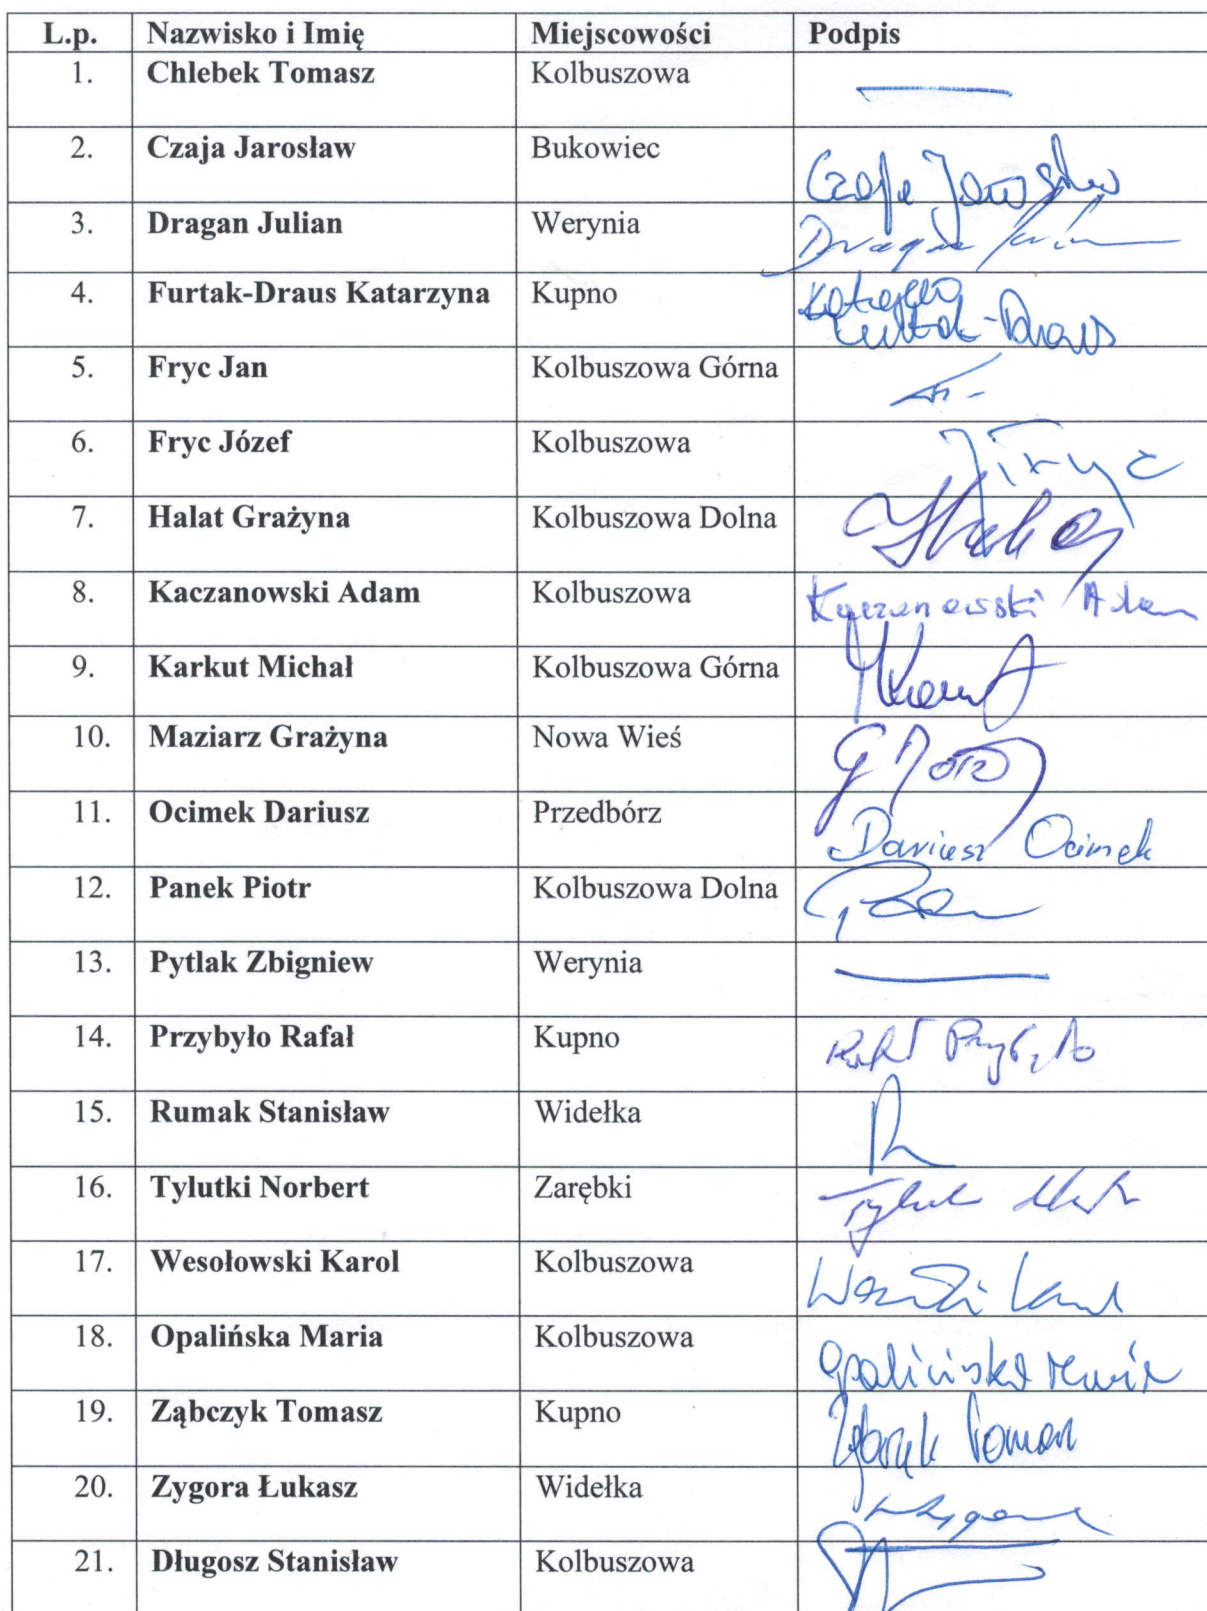 L.p. Nazwisko i Imię Miejscowości Podpis
1. Chlebek Tomasz Kolbuszowa
2. Czaja Jarosław Bukowiec Czaja Jarosław
3. Dragan Julian Werynia Dragan Julian
4. Furtak-Draus Katarzyna Kupno Katarzyna Furtak-Draus
5. Fryc Jan Kolbuszowa Górna
6. Fryc Józef Kolbuszowa J Fryc
7. Halat Grażyna Kolbuszowa Dolna
8. Kaczanowski Adam Kolbuszowa Kaczanowski Adam
9. Karkut Michał Kolbuszowa Górna
10. Maziarz Grażyna Nowa Wieś
11. Ocimek Dariusz Przedbórz Dariusz Ocimek
12. Panek Piotr Kolbuszowa Dolna
13. Pytlak Zbigniew Werynia
14. Przybyło Rafał Kupno Rafał Przybyło
15. Rumak Stanisław Widełka
16. Tylutki Norbert Zarębki
17. Wesołowski Karol Kolbuszowa
18. Opalińska Maria Kolbuszowa Opalińska Maria
19. Ząbczyk Tomasz Kupno
20. Zygora Łukasz Widełka
21. Długosz Stanisław Kolbuszowa